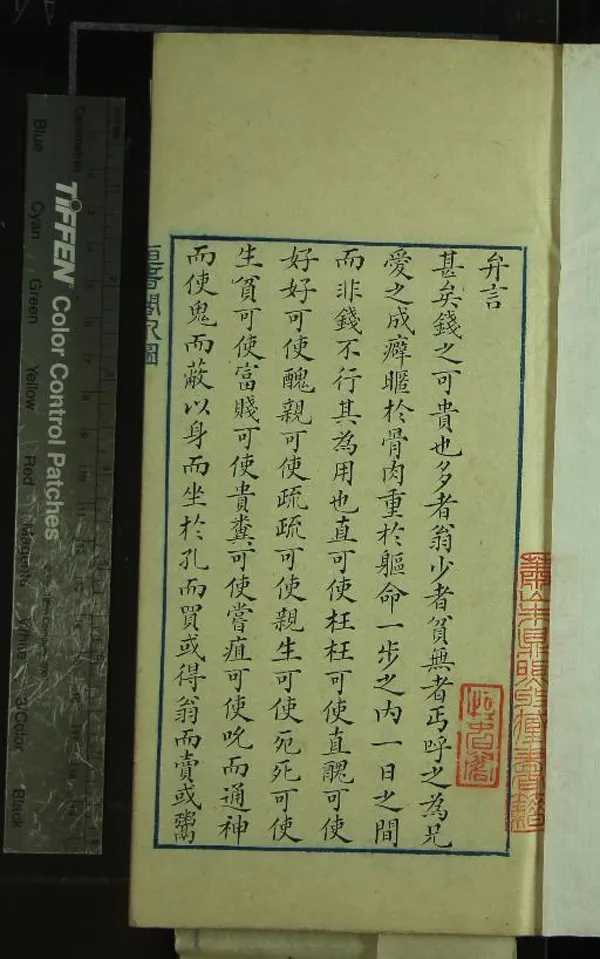 弁言
甚矣錢之可貴也多者翁少者貧無者丐呼之為兄
愛之成癖暱於骨肉重於軀命一步之內一日之間
而非錢不行其為用也直可使枉枉可使直醜可使
好好可使醜親可使疏疏可使親生可使死死可使
生貧可使富賤可使貴糞可使嘗疽可使吮而通神
而使鬼而蔽以身而坐於孔而買或得翁而賣或鬻
TIFFEN Color Control Patches
Centimetres
Blue
Cyan
Green
Yellow
Red
Magenta
White
3/Color
Black